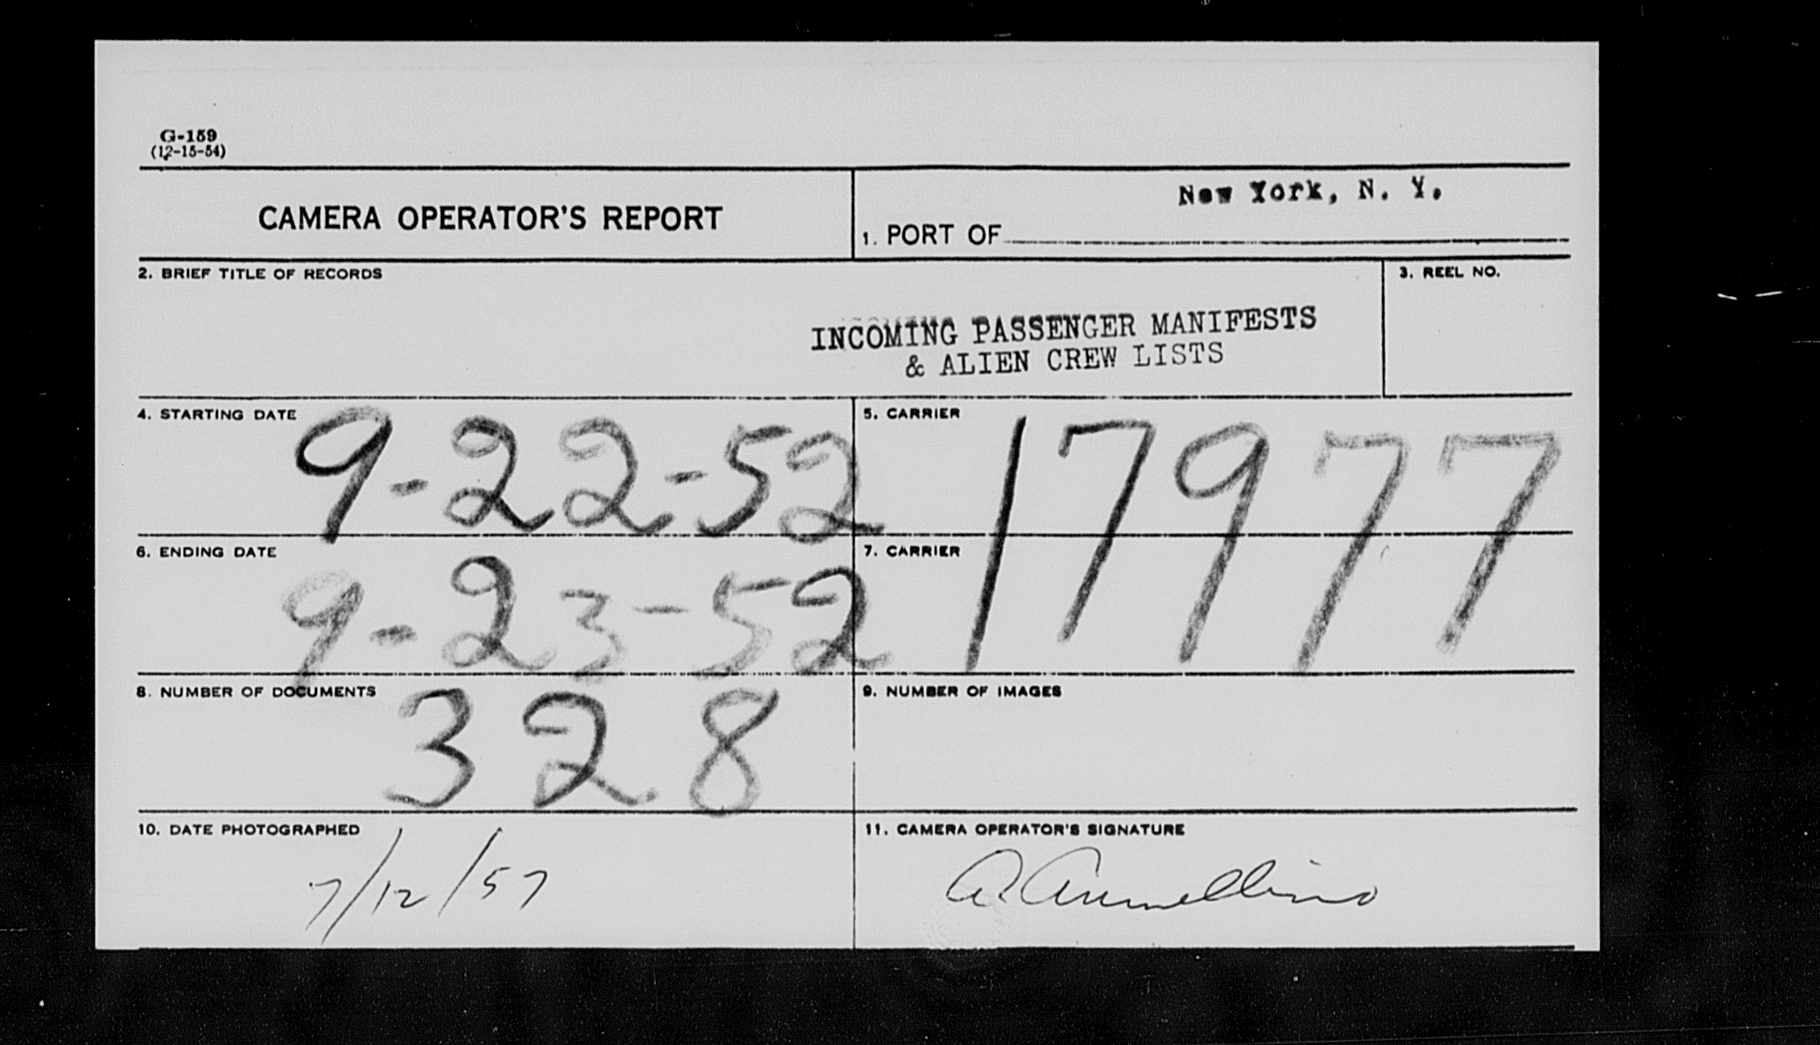 G-159
(12-15-54)
CAMERA OPERATOR'S REPORT
1. PORT OF New York, N. Y.
2. BRIEF TITLE OF RECORDS
3. REEL NO.
INCOMING PASSENGER MANIFESTS
& ALIEN CREW LISTS
4. STARTING DATE 9-22-52
5. CARRIER
17977
6. ENDING DATE 9-23-52
7. CARRIER
8. NUMBER OF DOCUMENTS 328
9. NUMBER OF IMAGES
10. DATE PHOTOGRAPHED
7/12/57
11. CAMERA OPERATOR'S SIGNATURE
A. Armellino